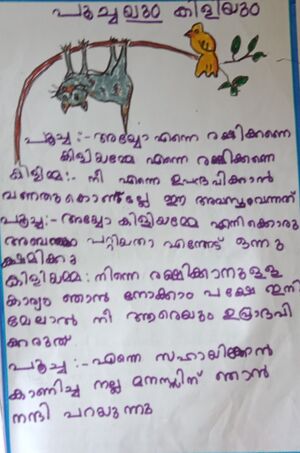 പൂച്ചയും കിളിയും
പൂച്ച :- അയ്യോ എന്നെ രക്ഷിക്കണെ
കിളിയമ്മെ എന്നെ രക്ഷിക്കണെ
കിളിമ്മ:- നീ എന്നെ ഉപദ്രവിക്കാൻ
വന്നതുകൊണ്ടല്ലേ ഈ അവസ്ഥവന്നത്
പൂച്ച:- അയ്യോ കിളിയമ്മെ എനിക്കൊരു
അബദ്ധം പറ്റിയതാ എന്നോട് ഒന്നു
ക്ഷമിക്കു
കിളിയമ്മ: നിന്നെ രക്ഷിക്കാനുള്ള
കാര്യം ഞാൻ നോക്കാം പക്ഷേ ഇനി
മേലാൽ നീ ആരെയും ഉപ്രദവി
ക്കരുത്
പൂച്ച :- എന്നെ സഹായിക്കാൻ
കാണിച്ച നല്ല മനസ്സിന് ഞാൻ
നന്ദി പറയുന്നു